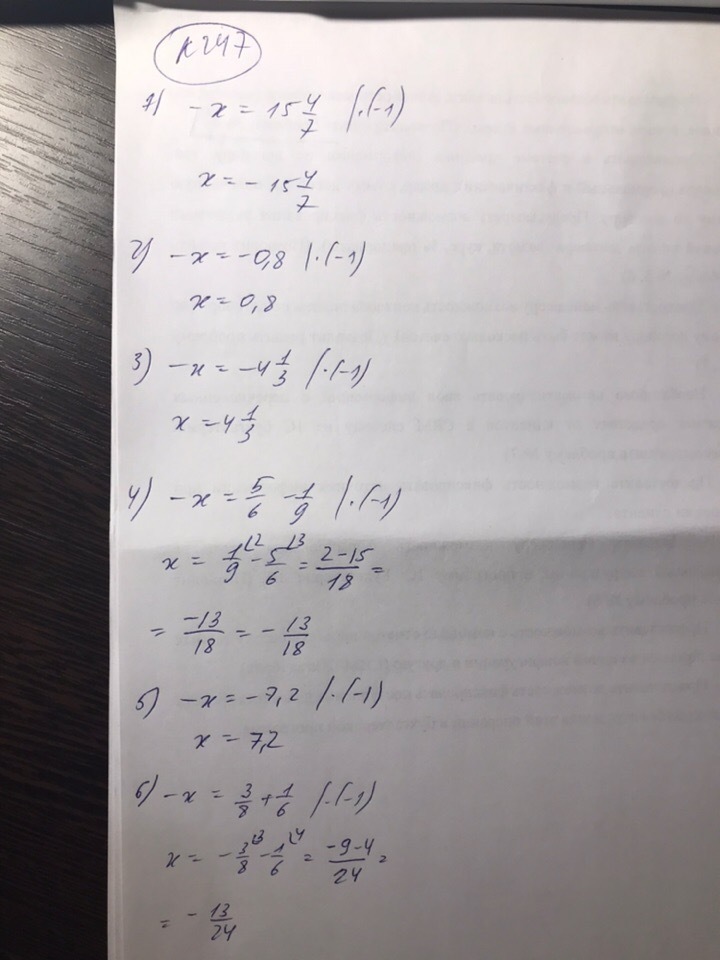 N247
1) -x = 15 4/7 |·(-1)
x = -15 4/7
2) -x = -0,8 |·(-1)
x = 0,8
3) -x = -4 1/3 |·(-1)
x = 4 1/3
4) -x = 5/6 - 1/9 |·(-1)
x = 1/9 ⌊2 - 5/6 ⌊3 = 2-15/18 =
= -13/18 = - 13/18
5) -x = -7,2 |·(-1)
x = 7,2
6) -x = 3/8 + 1/6 |·(-1)
x = - 3/8 ⌊3 - 1/6 ⌊4 = -9-4/24 =
= - 13/24